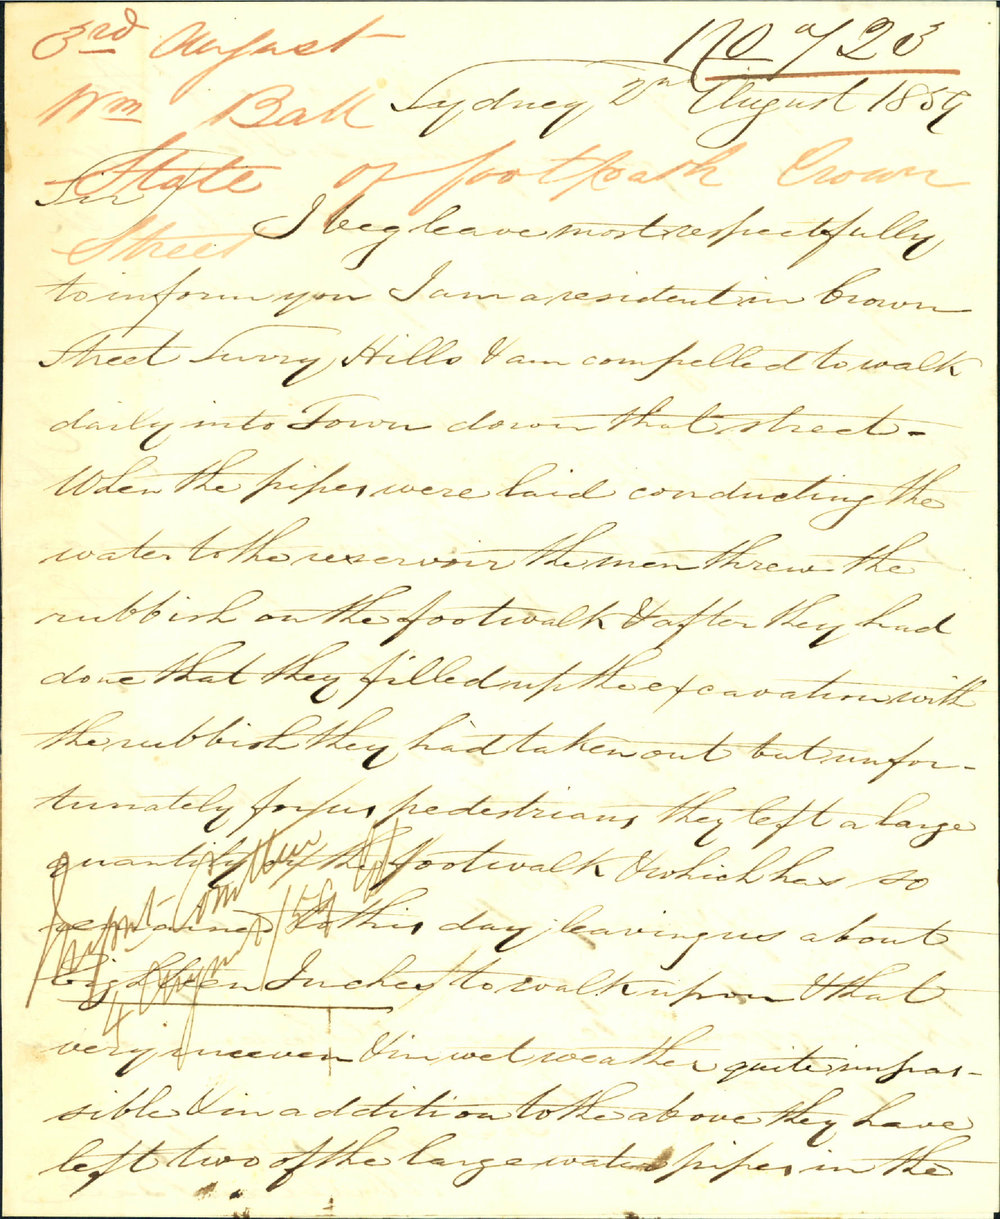 3rd August
No 723
Wm Ball
Sydney 2nd August 1859
State of footpath Crown
Street
Sir
I beg leave most respectfully
to inform you I am a resident in Crown
Street Surry Hills & am compelled to walk
daily into Town down that street -
When the pipes were laid conducting the
water to the reservoir the men threw the
rubbish on the footwalk & after they had
done that they filled up the excavation with
the rubbish they had taken out but unfor-
tunately for us pedestrians they left a large
quantity on the footwalk & which has so
remained to this day leaving us about
Eighteen Inches to walk upon & that
very uneven & in wet weather quite impas-
sible & in addition to the above they have
left two of the large water pipes in the
Impt Committee
4 August /59